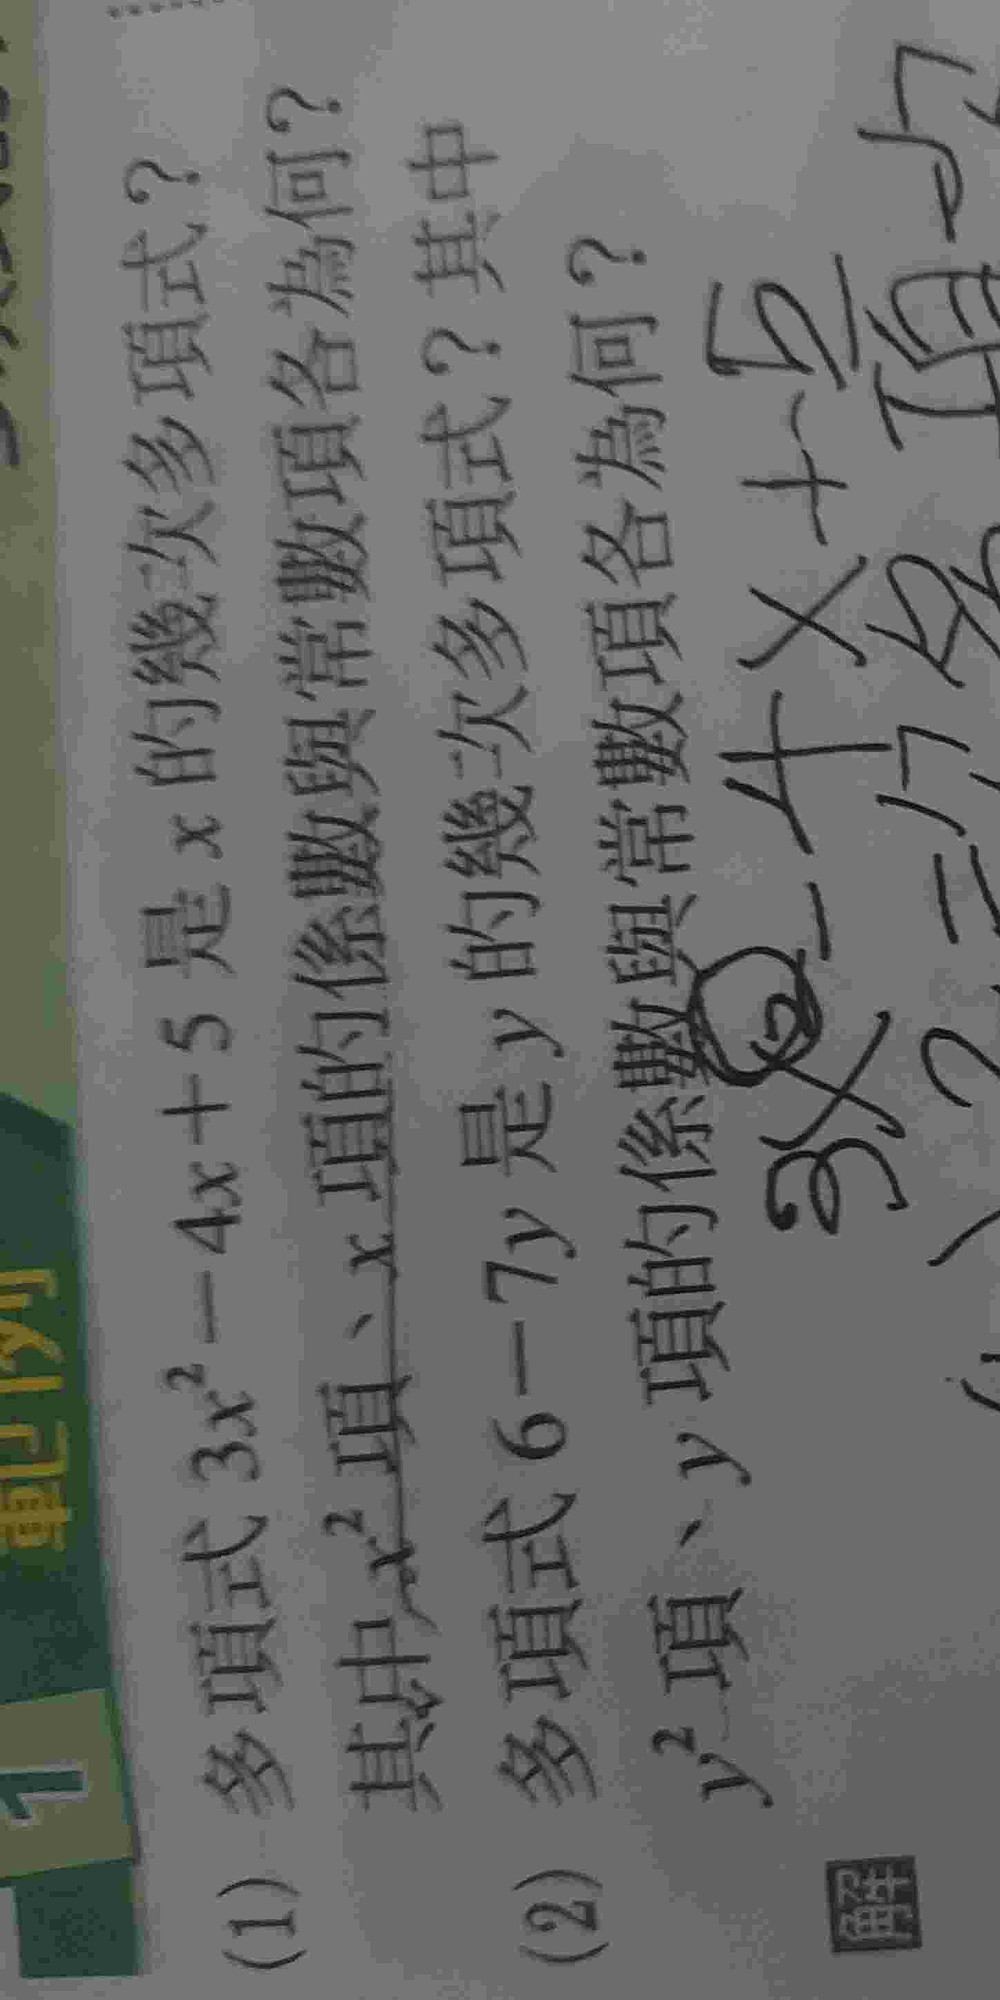 例題 1
(1) 多項式 3x²－4x＋5 是 x 的幾次多項式？
其中 x² 項、x 項的係數與常數項各為何？
(2) 多項式 6－7y 是 y 的幾次多項式？其中
y² 項、y 項的係數與常數項各為何？
解
3x²-4x+5